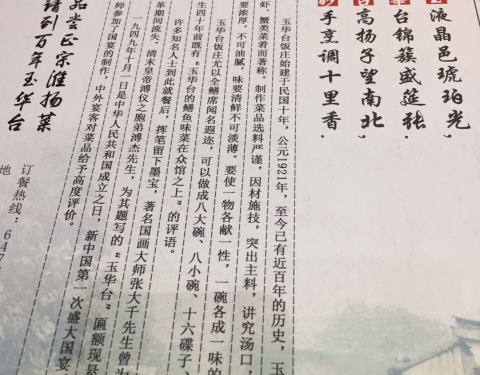 液晶邑琥珀光,
台锦簇盛筵张·
高扬子望南北
妙手烹调十里香·
玉华台饭庄始建于民国十年,公元1921年,至今已有近百年的历史,玉
虾、蟹类菜肴而著称,制作菜品选料严谨,因材施技,突出主料,讲究汤口,
要浓厚,不可油腻,味要清鲜不可淡薄。要使一物各献一性,一碗各成一味的
玉华台饭庄尤以全鳝席闻名遐迩,可以做成八大碗、八小碗、十六碟子、
生四十年前既有“玉华台的鳝鱼味菜在众馆之上”的评语。
许多知名人士到此就餐后,挥笔留下墨宝,著名国画大师张大千先生曾为
革期间流失、清末皇帝溥仪之胞弟溥杰先生,为其题写的“玉华台”匾额现悬
一九四九年十月一日是中华人民共和国成立之日,新中国第一次盛大国宴
师参加了国宴的制作,中外宾客对菜品给予高度评价。
品尝正宗淮扬菜
请到百年玉华台
订餐热线:647
地